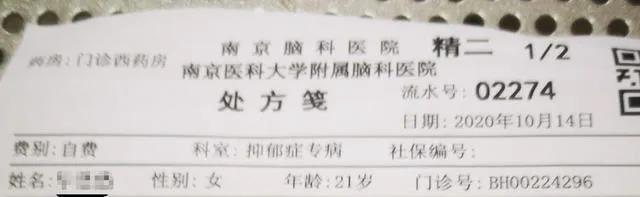 南京脑科医院 精二 1/2
药房: 门诊西药房 南京医科大学附属脑科医院
处方笺 流水号: 02274
日期: 2020年10月14日
费别: 自费 科室: 抑郁症专病 社保编号:
姓名: 性别: 女 年龄: 21岁 门诊号: BH00224296